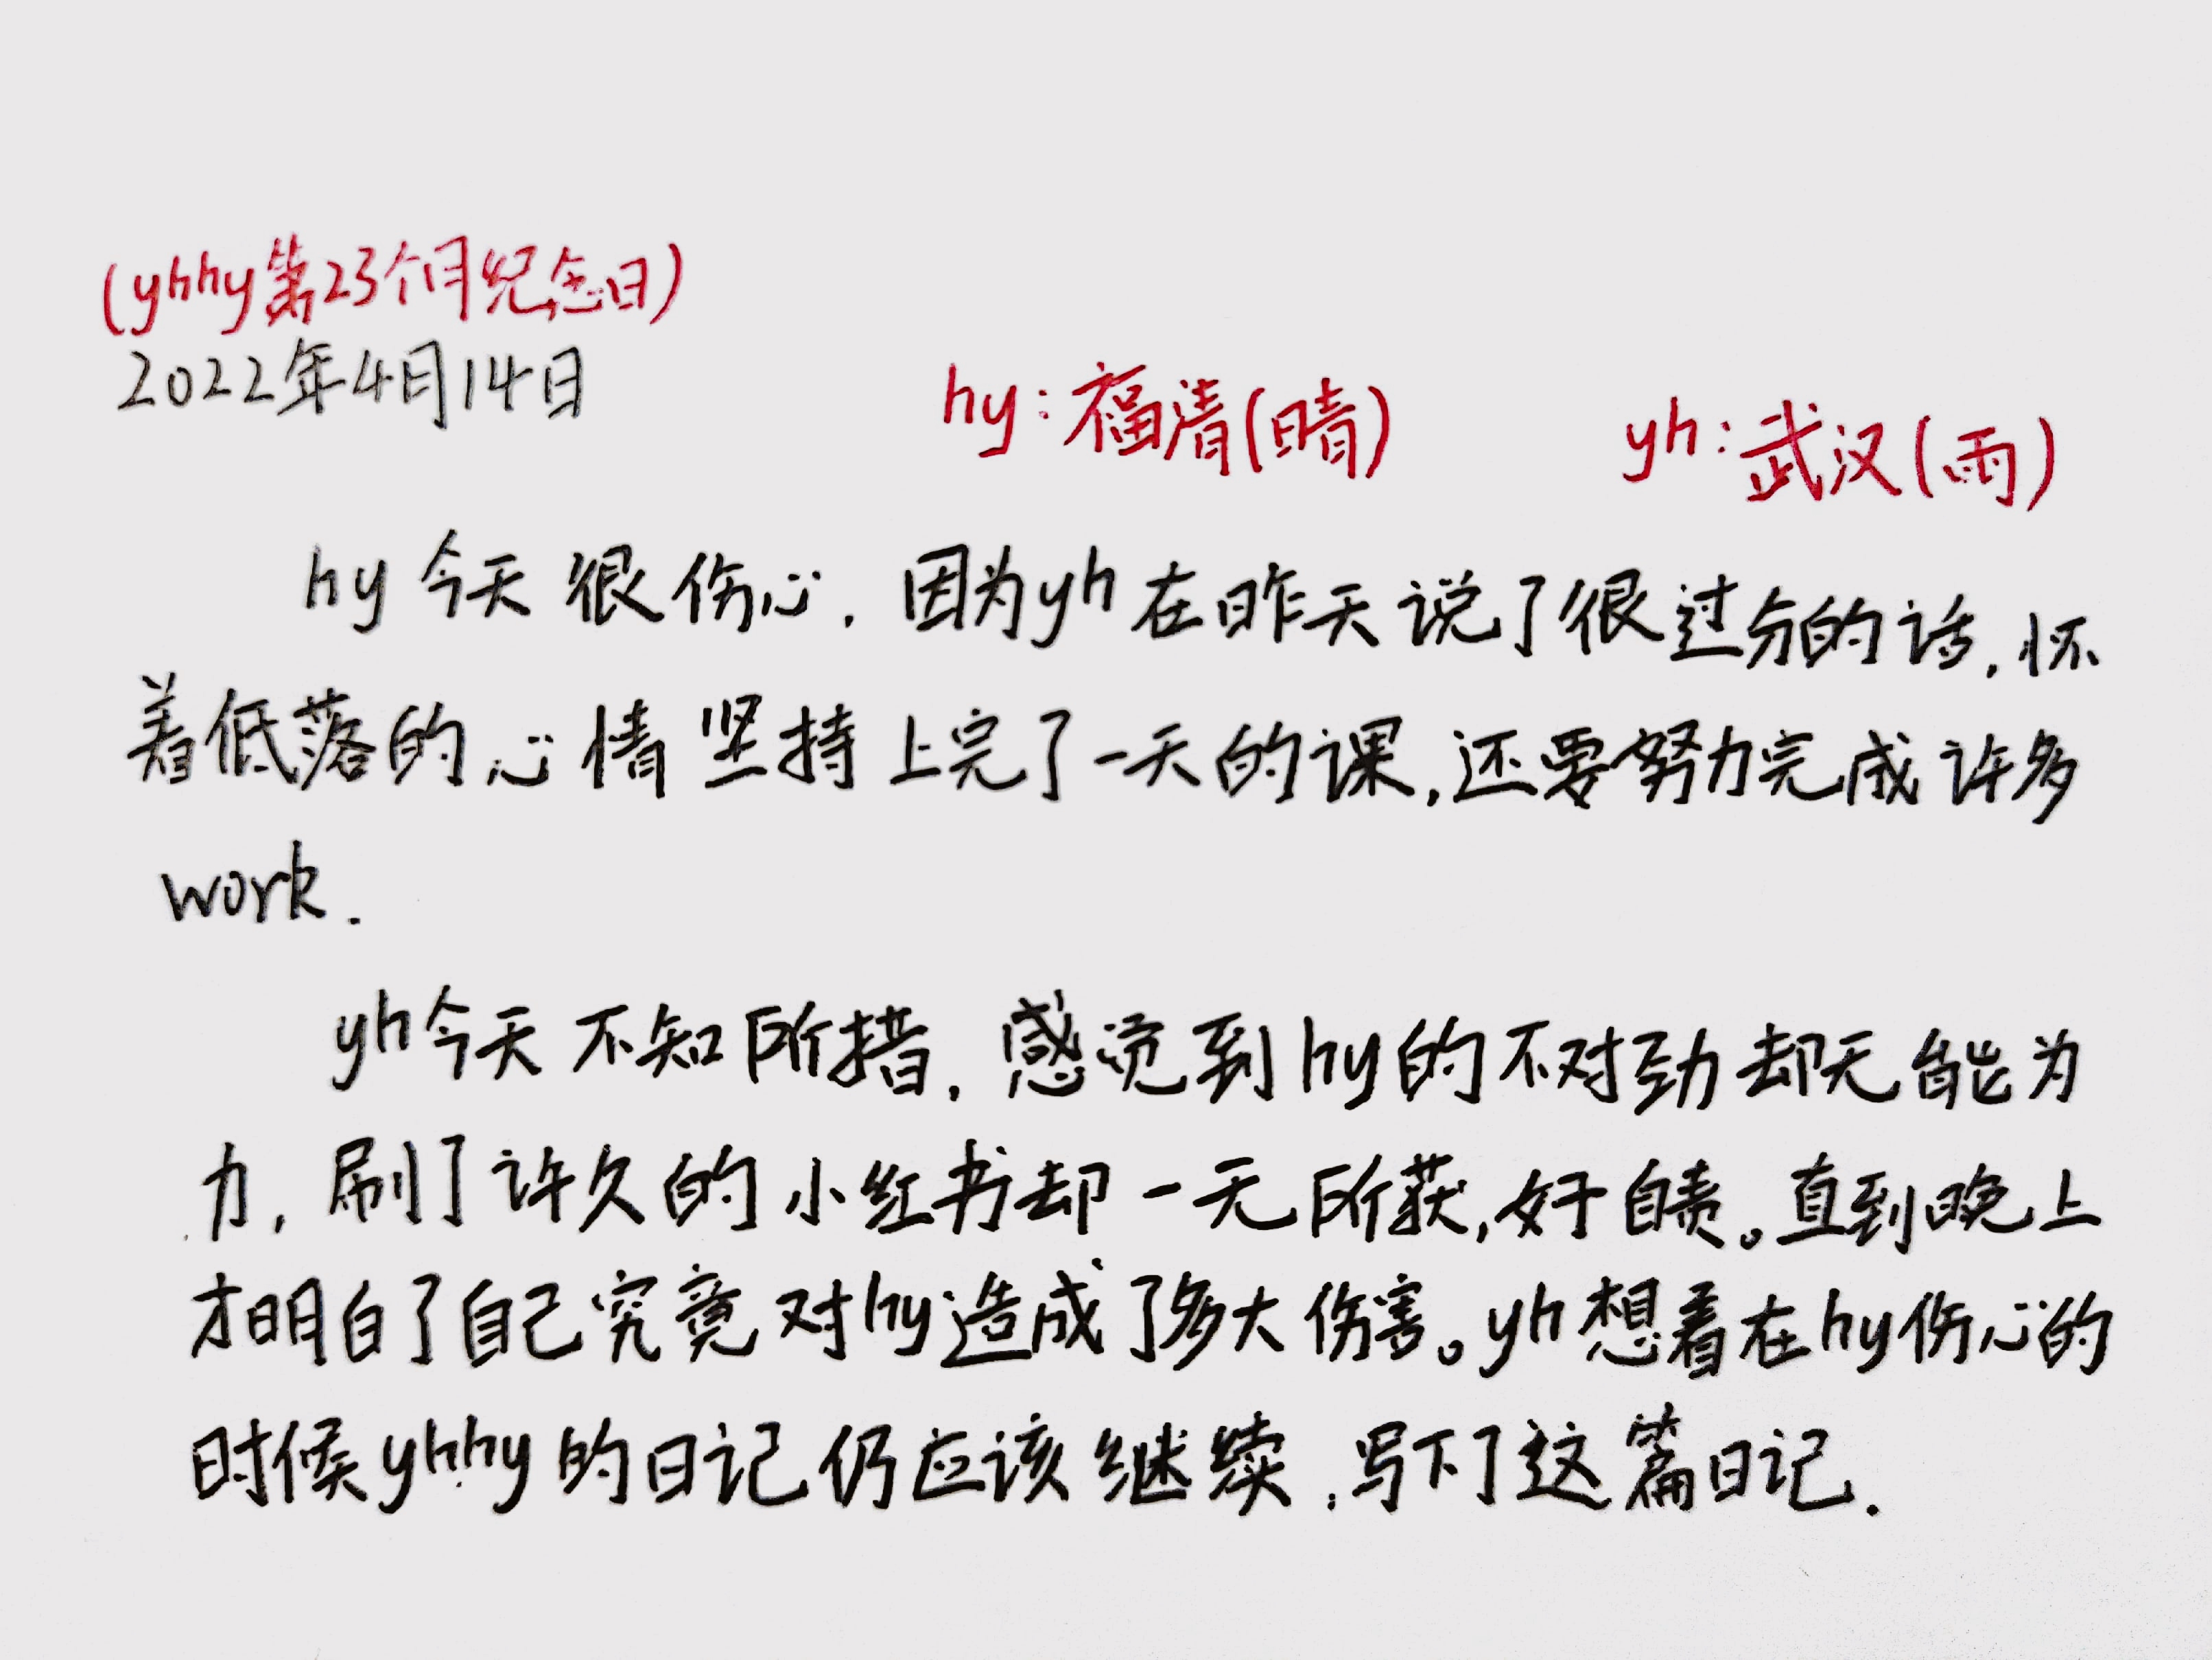 (yhhy第23个月纪念日)
2022年4月14日
hy:福清(晴) yh:武汉(雨)
hy今天很伤心,因为yh在昨天说了很过分的话,怀
着低落的心情坚持上完了一天的课,还要努力完成许多
work.
yh今天不知所措,感觉到hy的不对劲却无能为
力,刷了许久的小红书却一无所获,好自责。直到晚上
才明白了自己究竟对hy造成了多大伤害。yh想着在hy伤心的
时候yhhy的日记仍应该继续,写下了这篇日记.